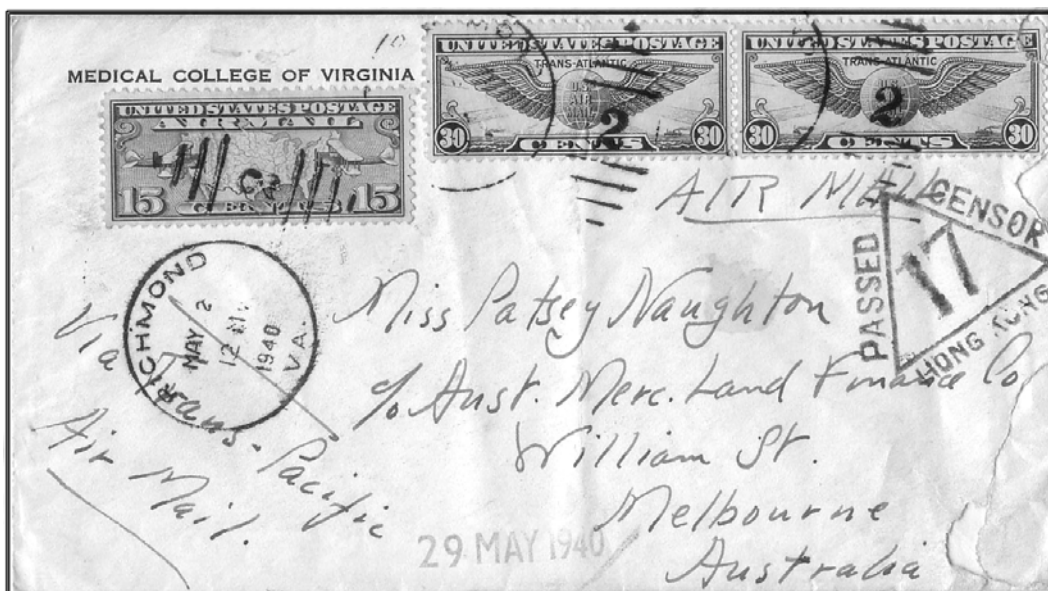 MEDICAL COLLEGE OF VIRGINIA
UNITED STATES POSTAGE
AIR MAIL
15 CENTS 15
UNITED STATES POSTAGE
TRANS-ATLANTIC
U.S. AIR MAIL
30 CENTS 30
2
UNITED STATES POSTAGE
TRANS-ATLANTIC
30 CENTS 30
2
AIR MAIL
PASSED CENSOR
17
HONG KONG
RICHMOND VA.
MAY 2
12
1940
Via
Trans-Pacific
Air Mail.
Miss Patsey Naughton
c/o Aust. Merc. Land Finance Co
William St.
Melbourne
Australia
29 MAY 1940